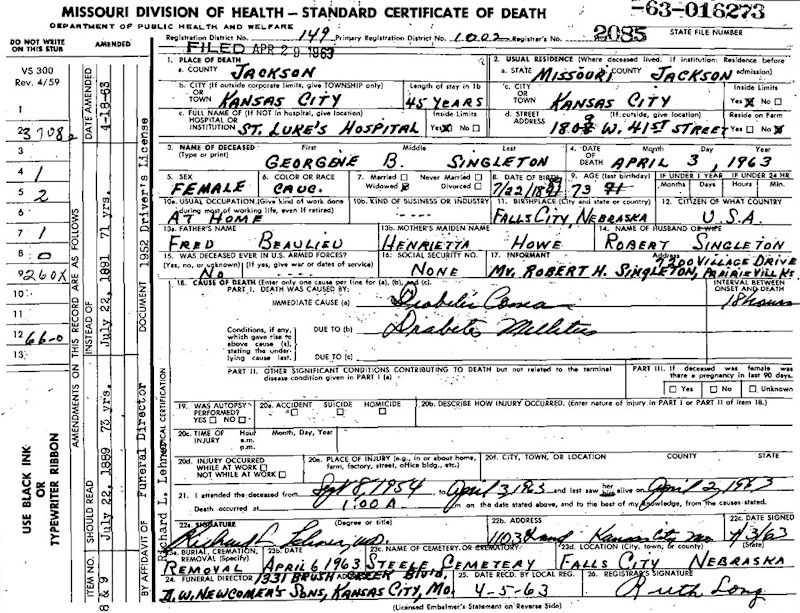 MISSOURI DIVISION OF HEALTH — STANDARD CERTIFICATE OF DEATH
-63-016273
DEPARTMENT OF PUBLIC HEALTH AND WELFARE
STATE FILE NUMBER
Registration District No. 149 Primary Registration District No. 1002 Registrar's No. 2085
FILED APR 29 1963
DO NOT WRITE ON THIS STUB
AMENDED
VS 300
Rev. 4/59
DATE AMENDED 4-18-63
1
2 3708
3
4 1
5 2
6
7 1
8 0
9 260X
10
11
12 66-0
13
USE BLACK INK
OR
TYPEWRITER RIBBON
AMENDMENTS ON THIS RECORD ARE AS FOLLOWS
INSTEAD OF
July 22, 1891 71 yrs.
SHOULD READ
July 22, 1889 73 yrs.
ITEM NO.
8 & 9
DOCUMENT 1952 Driver's License
BY AFFIDAVIT OF Funeral Director
Richard L. Lehner
MEDICAL CERTIFICATION
1. PLACE OF DEATH
a. COUNTY JACKSON
2. USUAL RESIDENCE (Where deceased lived. If institution: Residence before admission)
a. STATE MISSOURI b. COUNTY JACKSON
b. CITY (If outside corporate limits, give TOWNSHIP only) OR TOWN KANSAS CITY
Length of stay in 1b 45 YEARS
c. CITY OR TOWN KANSAS CITY
Inside Limits Yes No
c. FULL NAME OF (If NOT in hospital, give location) HOSPITAL OR INSTITUTION ST. LUKE'S HOSPITAL
Inside Limits Yes No
d. STREET ADDRESS (If outside, give location) 1808 W. 41ST STREET
Reside on Farm Yes No
3. NAME OF DECEASED (Type or print) First Middle Last
GEORGENE B. SINGLETON
4. DATE OF DEATH Month Day Year
APRIL 3, 1963
5. SEX FEMALE
6. COLOR OR RACE CAUC.
7. Married Never Married Widowed Divorced
8. DATE OF BIRTH 7/22/18
9. AGE (last birthday) 73
IF UNDER 1 YEAR Months Days
IF UNDER 24 HR Hours Min.
10a. USUAL OCCUPATION (Give kind of work done during most of working life, even if retired) AT HOME
10b. KIND OF BUSINESS OR INDUSTRY ----
11. BIRTHPLACE (City and state or country) FALLS CITY, NEBRASKA
12. CITIZEN OF WHAT COUNTRY U.S.A.
13a. FATHER'S NAME FRED BEAULIEU
13b. MOTHER'S MAIDEN NAME HENRIETTA HOWE
14. NAME OF HUSBAND OR WIFE ROBERT SINGLETON
15. WAS DECEASED EVER IN U.S. ARMED FORCES? (Yes, no, or unknown) (If yes, give war or dates of service) NO
16. SOCIAL SECURITY NO. NONE
17. INFORMANT MR. ROBERT H. SINGLETON, 7300 VILLAGE DRIVE PRAIRIE VIL. KS.
18. CAUSE OF DEATH (Enter only one cause per line for (a), (b), and (c).
PART I. DEATH WAS CAUSED BY:
INTERVAL BETWEEN ONSET AND DEATH
IMMEDIATE CAUSE (a) Diabetic Coma 18 hours
Conditions, if any, which gave rise to above cause (a), stating the underlying cause last.
DUE TO (b) Diabetes Mellitus
DUE TO (c)
PART II. OTHER SIGNIFICANT CONDITIONS CONTRIBUTING TO DEATH but not related to the terminal disease condition given in PART I (a)
PART III. If deceased was female was there a pregnancy in last 90 days.
Yes No Unknown
19. WAS AUTOPSY PERFORMED? YES NO
20a. ACCIDENT SUICIDE HOMICIDE
20b. DESCRIBE HOW INJURY OCCURRED. (Enter nature of injury in PART I or PART II of item 18.)
20c. TIME OF INJURY Hour a.m. p.m. Month, Day, Year
20d. INJURY OCCURRED WHILE AT WORK NOT WHILE AT WORK
20e. PLACE OF INJURY (e.g., in or about home, farm, factory, street, office bldg., etc.)
20f. CITY, TOWN, OR LOCATION COUNTY STATE
21. I attended the deceased from Sept 8, 1954 to April 3, 1963 and last saw her alive on April 2, 1963
Death occurred at 1:00 A m on the date stated above, and to the best of my knowledge, from the causes stated.
22a. SIGNATURE (Degree or title) Richard L Lehner, M.D.
22b. ADDRESS 1103 Grand Kansas City Mo
22c. DATE SIGNED 4/3/63
23a. BURIAL, CREMATION, REMOVAL (Specify) REMOVAL
23b. DATE APRIL 6, 1963
23c. NAME OF CEMETERY OR CREMATORY STEELE CEMETERY
23d. LOCATION (City, town, or county) (State) FALLS CITY NEBRASKA
24. FUNERAL DIRECTOR ADDRESS 1331 BRUSH CREEK BLVD.
D.W. NEWCOMER'S SONS, KANSAS CITY, MO.
25. DATE RECD. BY LOCAL REG. 4-5-63
26. REGISTRAR'S SIGNATURE Ruth Long
(Licensed Embalmer's Statement on Reverse Side)